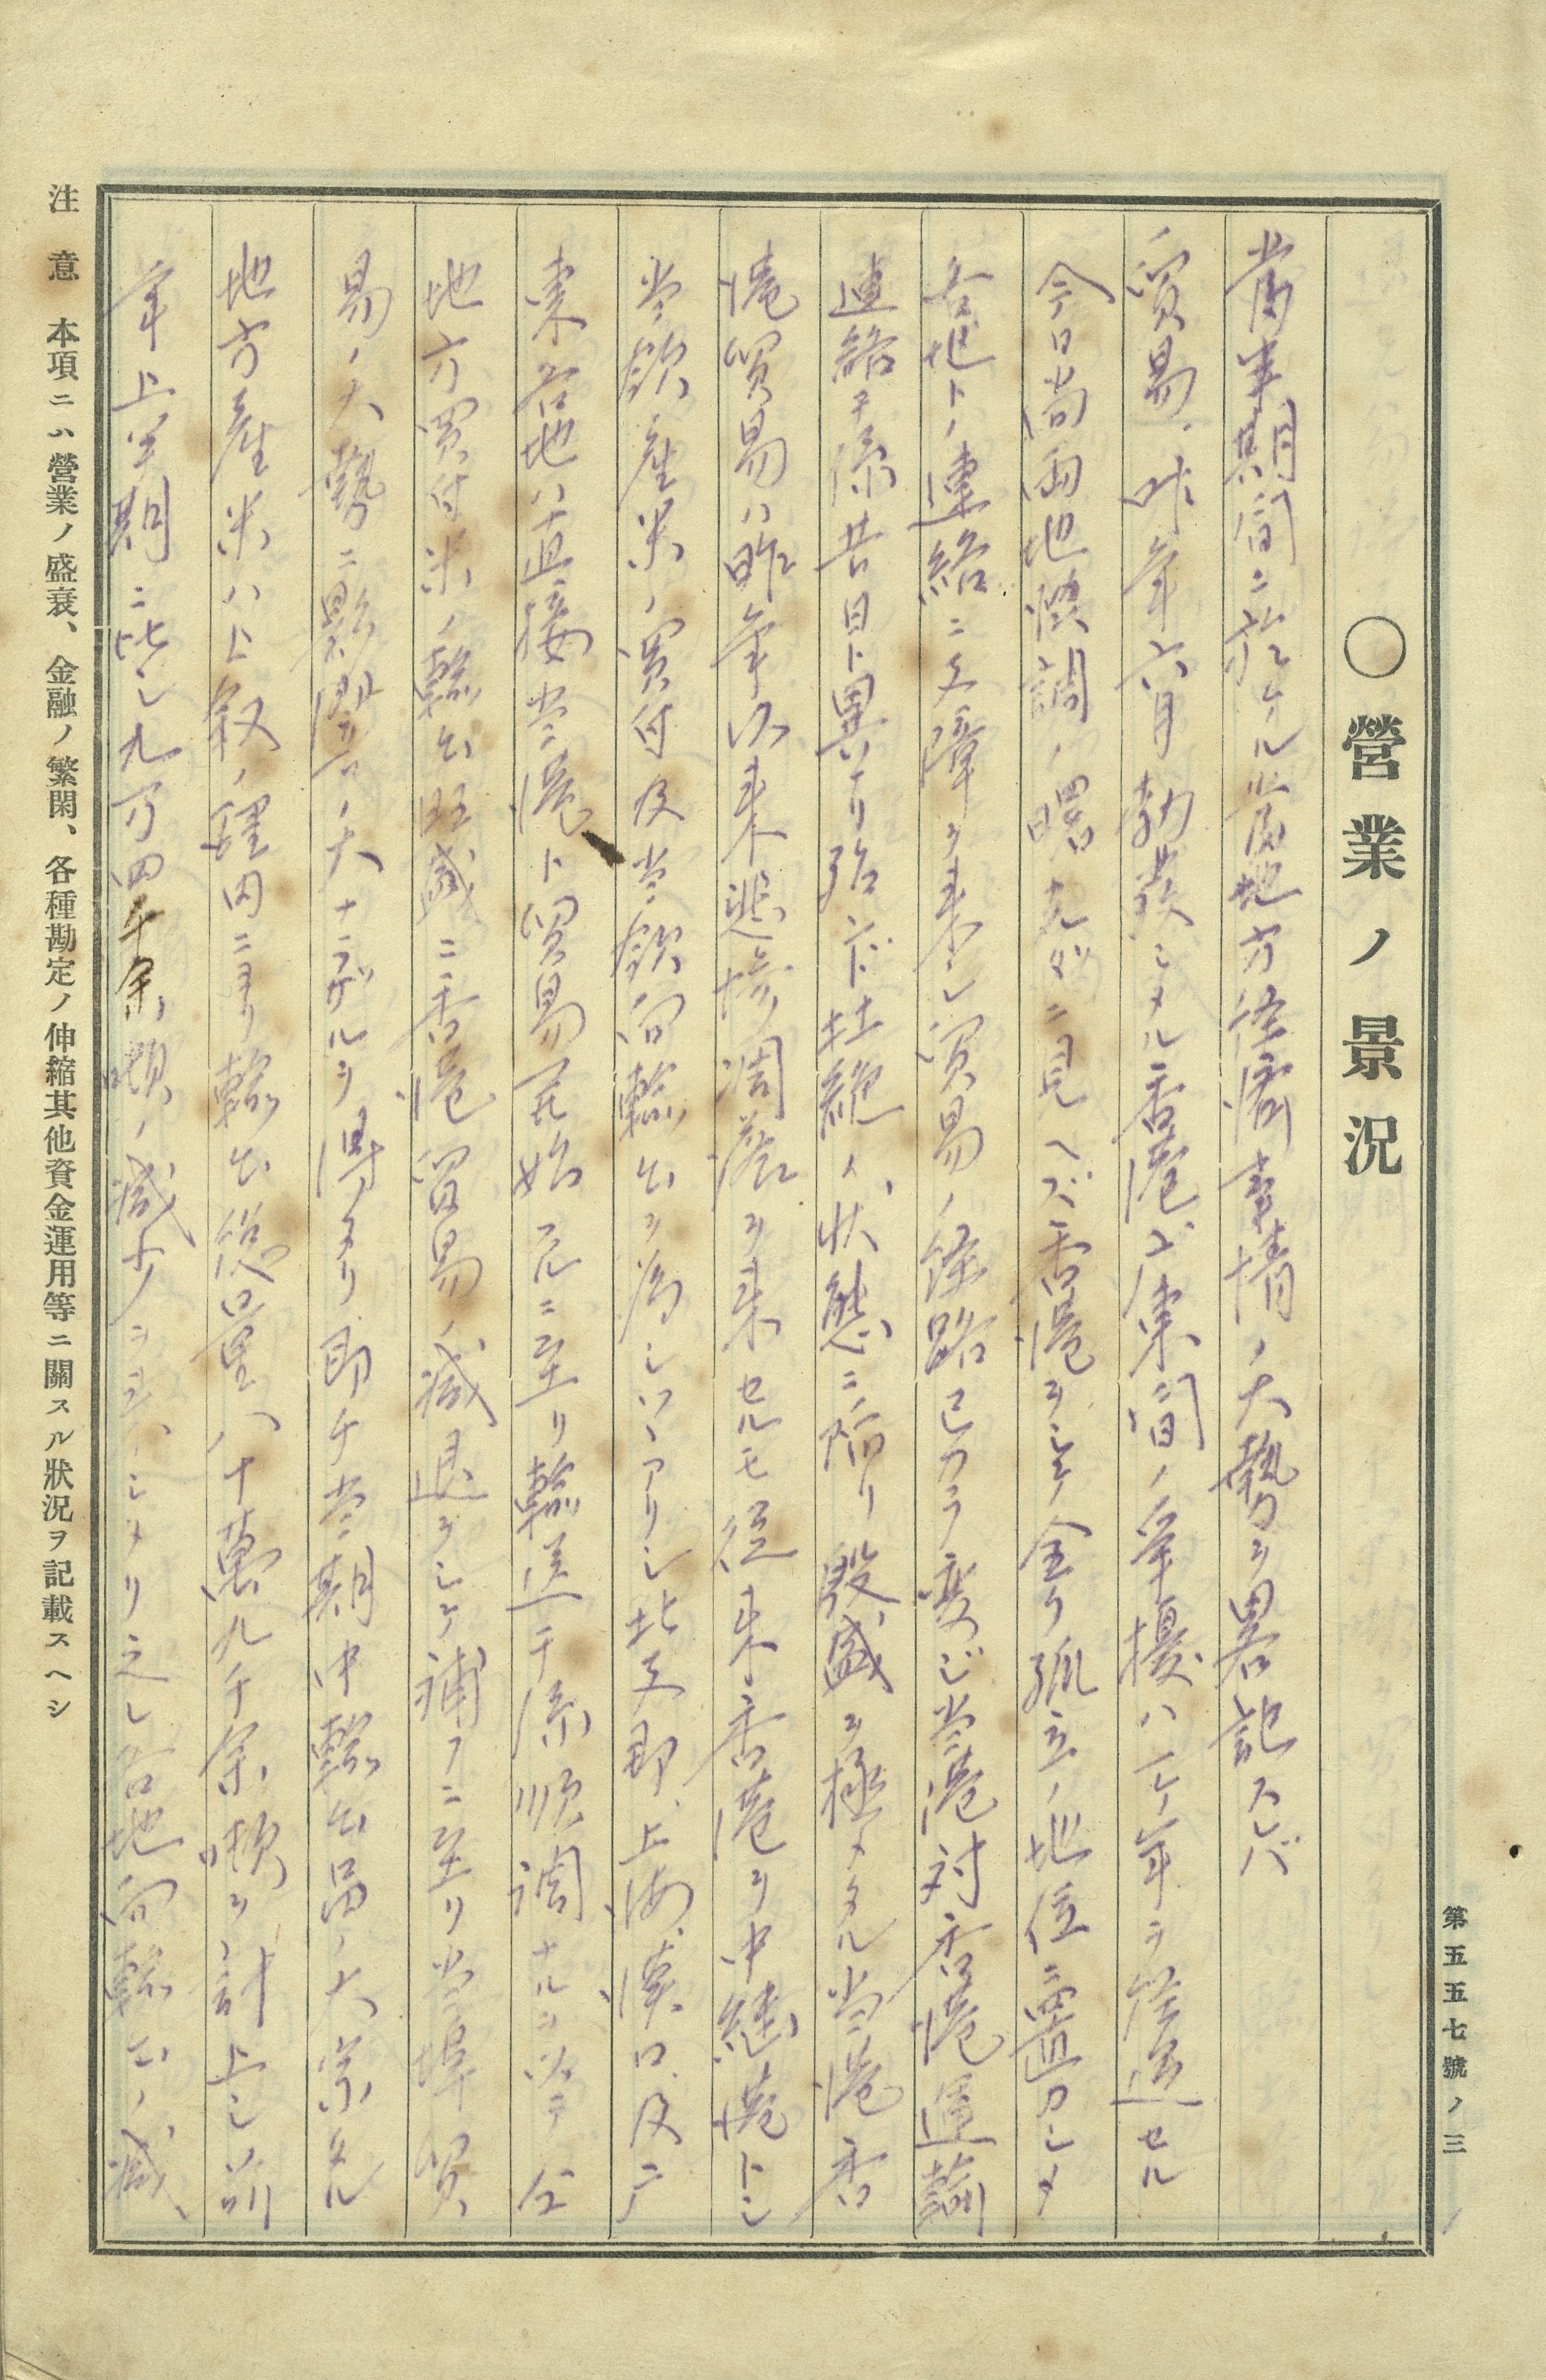 第五五七號ノ三
〇營業ノ景況
當半期間ニ於ケル當地方経濟事情ノ大勢ヲ畧記スレバ
貿易、昨年六月勃發シタル香港広東間ノ争擾ハ一ケ年ヲ経過セル
今日尚両地協調ノ曙光ダニ見ヘズ香港ヲシテ全ク孤立ノ地位ニ置カシメ
各地トノ連絡ニ支障ヲ来シ貿易ノ経路已カラ変ジ当港対香港運輸
連絡モ亦昔日ト異ナリ殆ンド杜絶ノ状態ニ陥リ殷盛ヲ極メタル当港香
港貿易ハ昨年以来悲惨凋落ヲ来セルモ従来香港ヲ中継港トシ
当館産米ノ買付及当館向輸出ヲ為シツヽアリシ北支即、上海、漢口、及広
東各地ハ直接当港ト貿易開始スルニ至リ輸送モ亦順調ナルヲ以テ仝
地方買付米ノ輸出旺盛ニ香港貿易ノ減退ヲシテ補フニ至リ当埠貿
易ノ大勢ニ影響ノ大ナラザルヲ得タリ即チ当期中輸出品ノ大宗タル
地方産米ハ上叙ノ理由ニヨリ輸出総量八十萬九千余噸ヲ計上シ前
年上半期ニ比シ九万四千余噸ノ減少ヲ示シタリ之レ各地向輸出ノ減、
注意 本項ニハ營業ノ盛衰、金融ノ繁閑、各種勘定ノ伸縮其他資金運用等ニ關スル狀況ヲ記載スヘシ